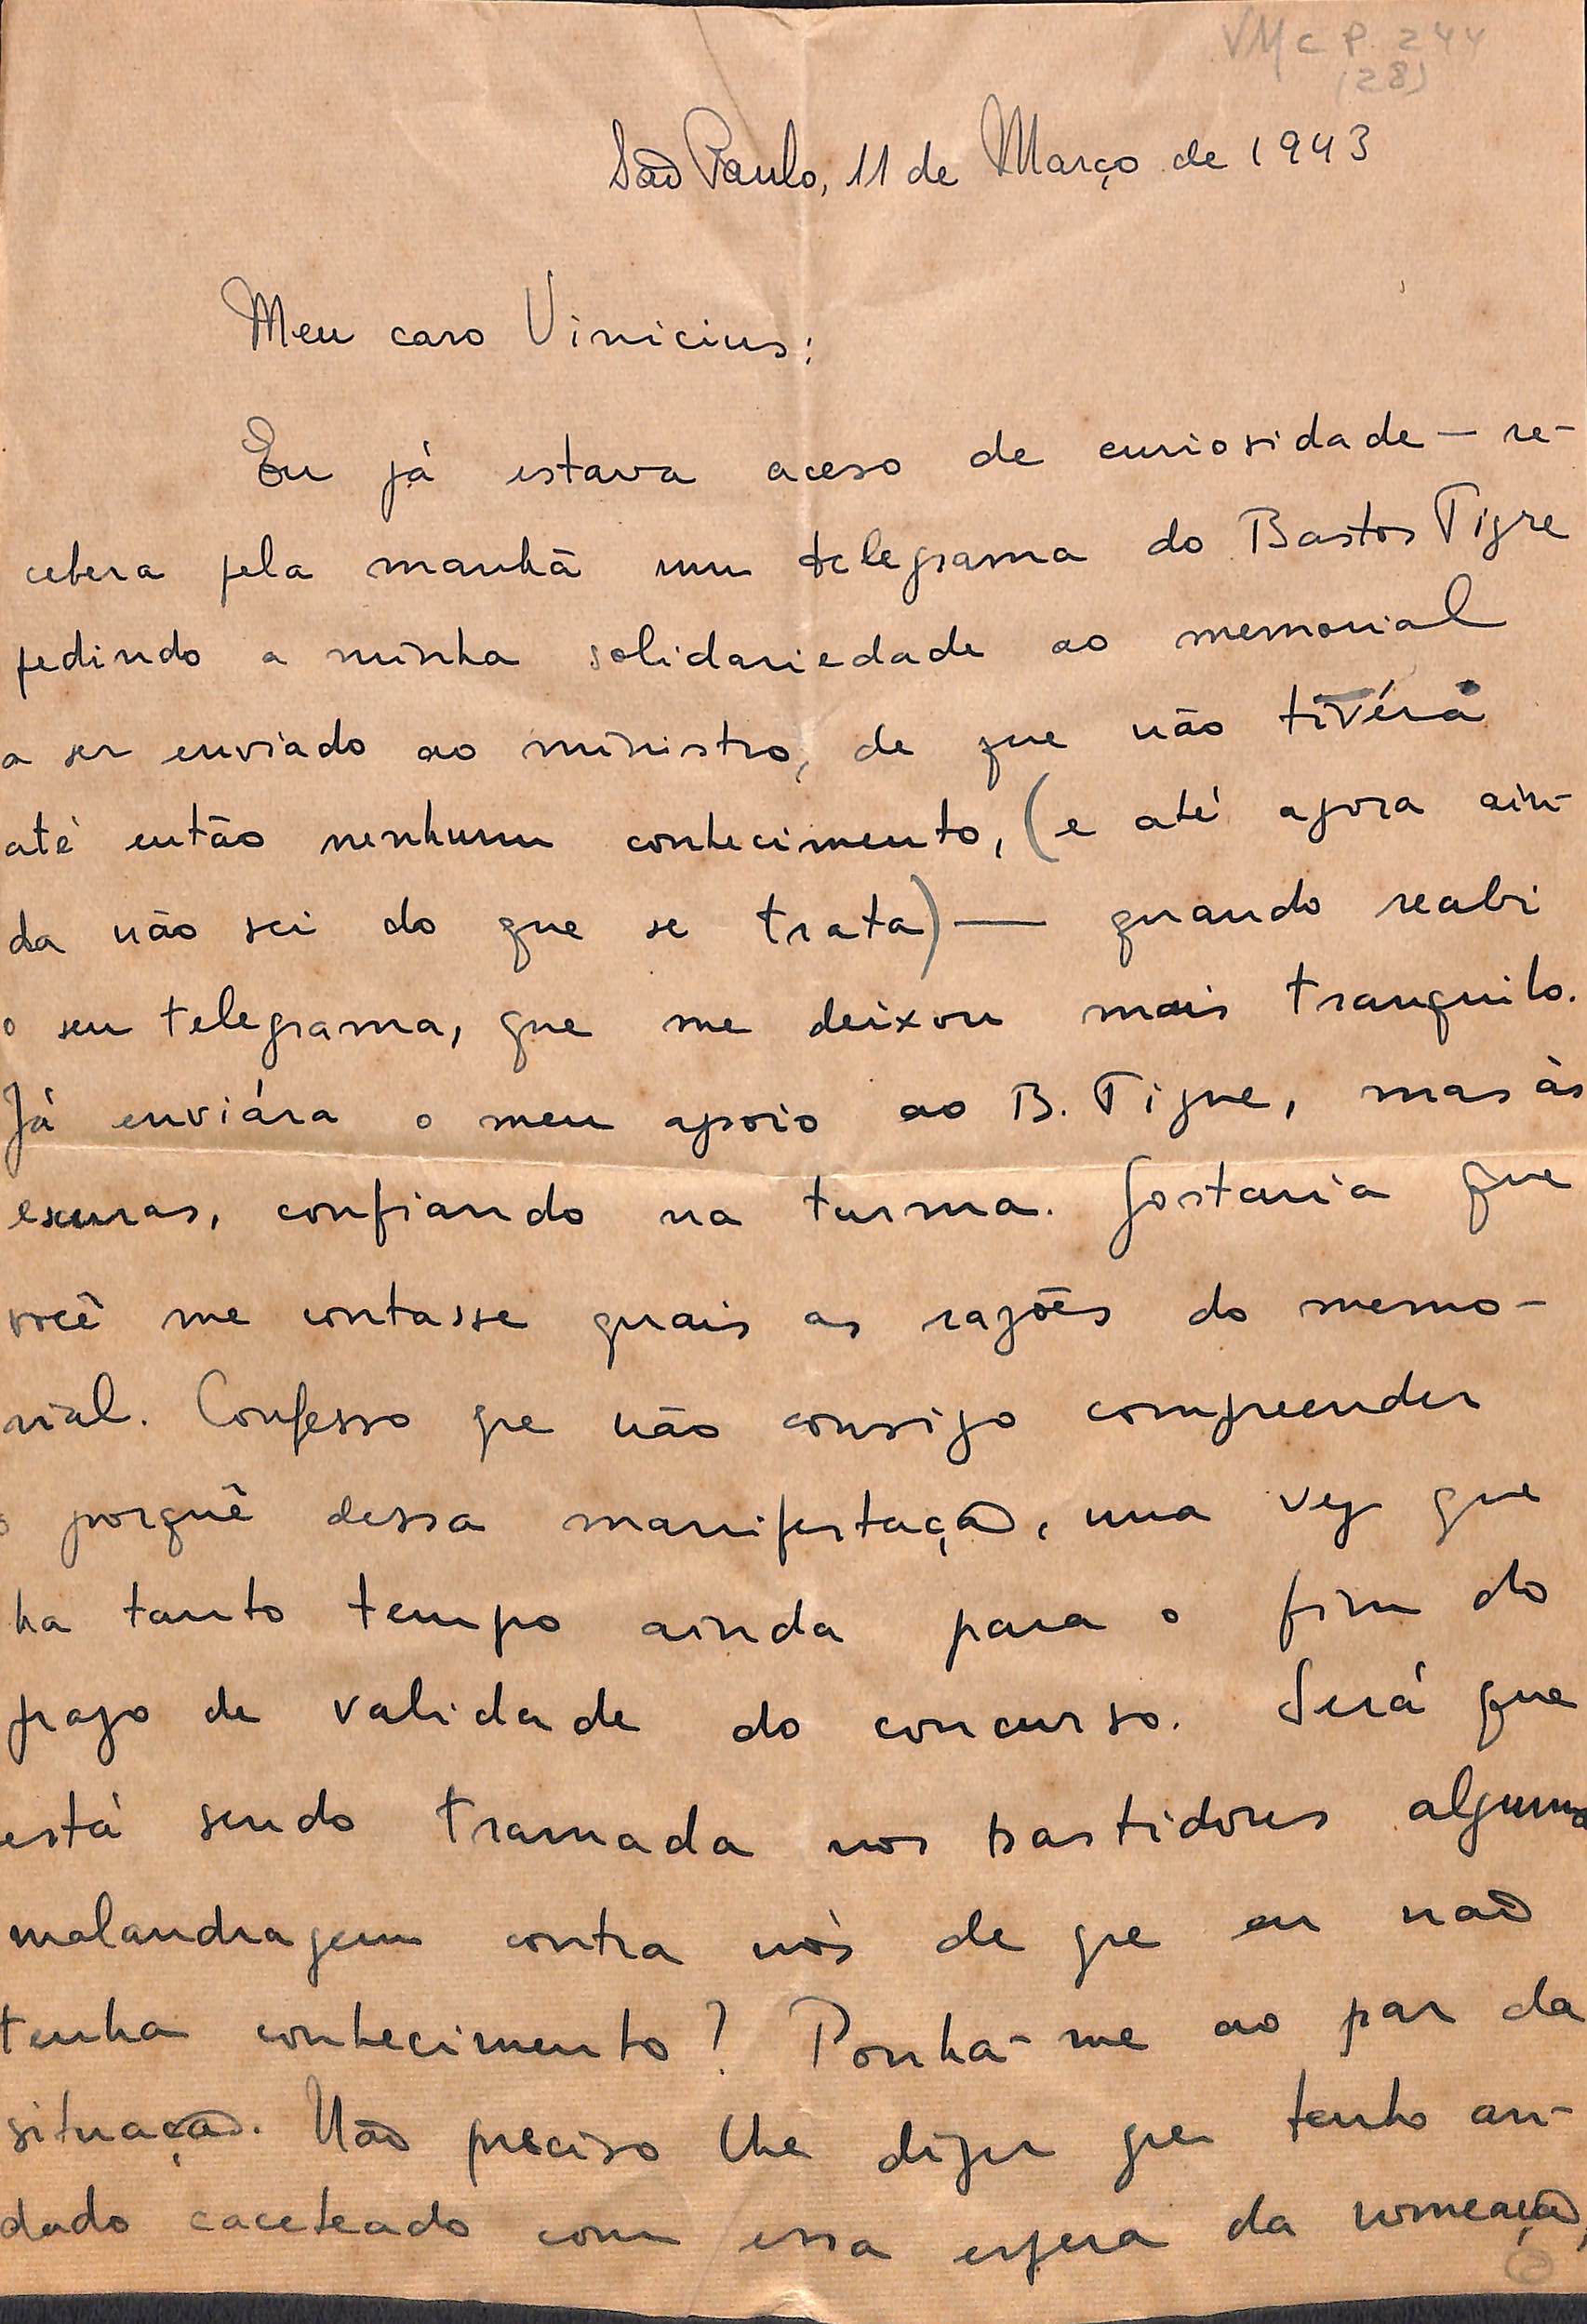 VMcP. 244
(28)
São Paulo, 11 de Março de 1943
Meu caro Vinicius:
Eu já estava aceso de curiosidade — re-
cebera pela manhã um telegrama do Bastos Tigre
pedindo a minha solidariedade ao memorial
a ser enviado ao ministro, de que não tivéra
até então nenhum conhecimento, (e até agora ain-
da não sei do que se trata) — quando recebi
o seu telegrama, que me deixou mais tranquilo.
Já enviára o meu apoio ao B. Tigre, mas às
escuras, confiando na turma. Gostaria que
você me contasse quais as razões do memo-
rial. Confesso que não consigo compreender
o porquê dessa manifestação, uma vez que
ha tanto tempo ainda para o fim do
prazo de validade do concurso. Será que
está sendo tramada nos bastidores alguma
malandragem contra nós de que eu não
tenha conhecimento? Ponha-me ao par da
situação. Não preciso lhe dizer que tenho an-
dado caceteado com essa espera da nomeação,